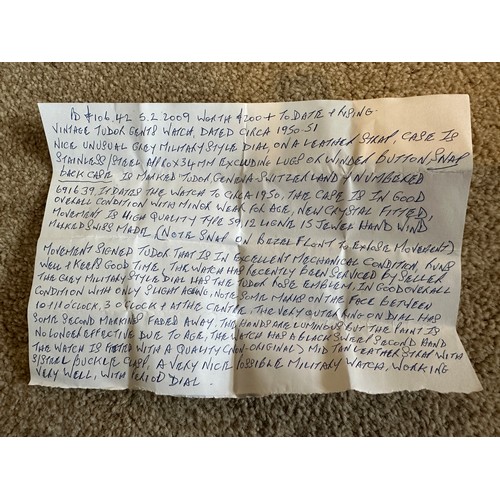 PD $106.42 5.2.2009 WORTH $200+ TO DATE & RISING.
VINTAGE TUDOR GENTS WATCH, DATED CIRCA 1950-51
NICE UNUSUAL GREY MILITARY STYLE DIAL, ON A LEATHER STRAP, CASE IS
STAINLESS/STEEL APPROX 34MM EXCLUDING LUGS OR WINDER BUTTON, SNAP
BACK CASE IS MARKED TUDOR GENEVA SWITZERLAND & NUMBERED
691639, IT DATES THE WATCH TO CIRCA 1950, THE CASE IS IN GOOD
OVERALL CONDITION WITH MINOR WEAR FOR AGE, NEW CRYSTAL FITTED,
MOVEMENT IS HIGH QUALITY TYPE 59, 12 LIGNE 15 JEWEL HAND WIND
MARKED SWISS MADE (NOTE SNAP ON BEZEL FLONT TO EXPOSE MOVEMENT)
MOVEMENT SIGNED TUDOR THAT IS IN EXCELLENT MECHANICAL CONDITION, RUNS
WELL & KEEPS GOOD TIME, THE WATCH HAS RECENTLY BEEN SERVICED BY SELLER
THE GREY MILITARY STYLE DIAL HAS THE TUDOR ROSE EMBLEM, IN GOOD OVERALL
CONDITION WITH ONLY SLIGHT AGEING, NOTE SOME MARKS ON THE FACE BETWEEN
10 & 11 O'CLOCK, 3 O'CLOCK & AT THE CENTRE. THE VERY OUTER RING ON DIAL HAS
SOME SECOND MARKINGS FADED AWAY, THE HANDS ARE LUMINOUS BUT THE PAINT IS
NO LONGER EFFECTIVE DUE TO AGE, THE WATCH HAS A BLACK SWEEP SECOND HAND
THE WATCH IS FITTED WITH A QUALITY (NON-ORIGINAL) MID TAN LEATHER STRAP WITH
S/STEEL BUCKLE CLASP, A VERY NICE POSSIBLE MILITARY WATCH, WORKING
VERY WELL, WITH PERIOD DIAL